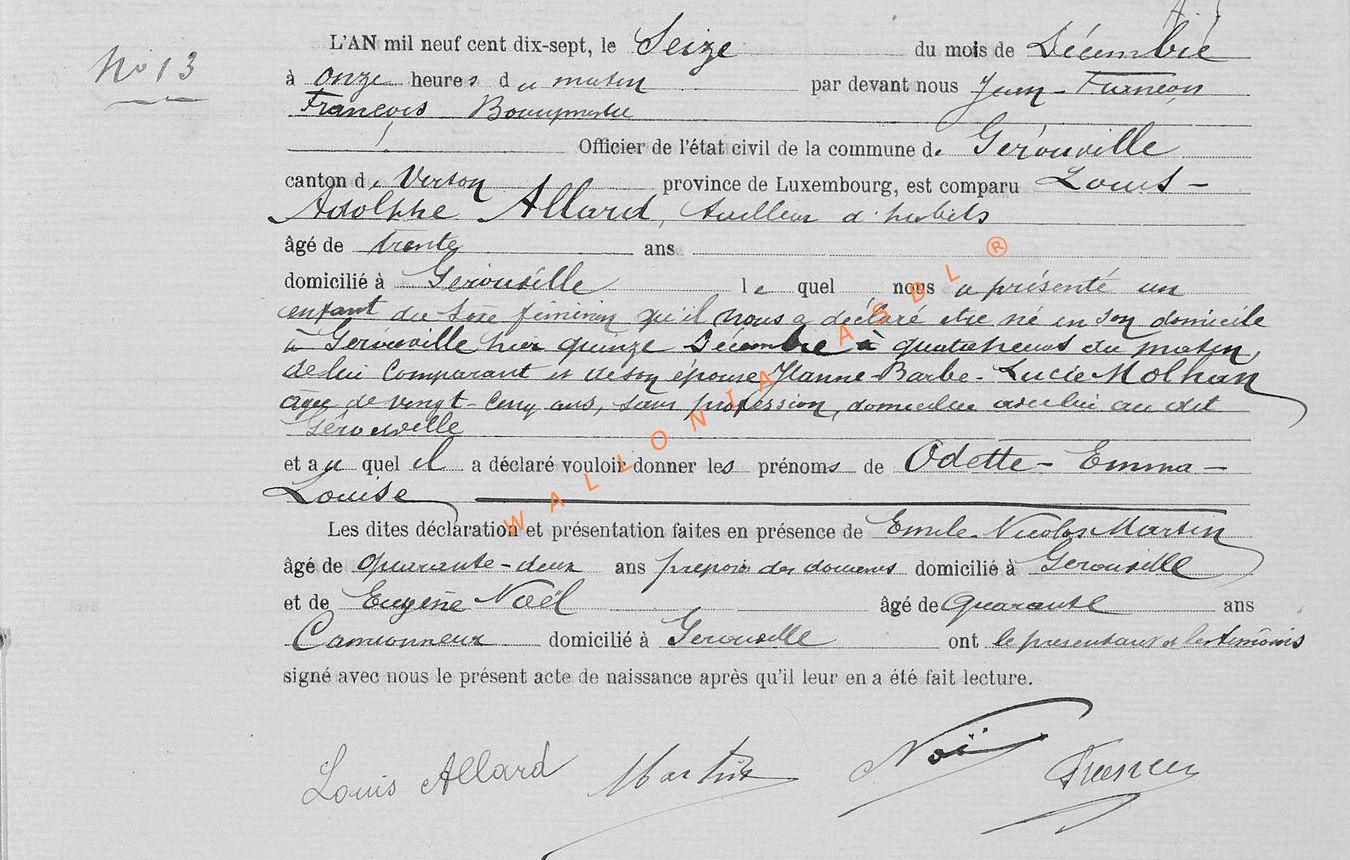 No 13
L'AN mil neuf cent dix-sept, le Seize du mois de Décembre
à onze heures du matin par devant nous Jean-
François Bourgmestre
Officier de l'état civil de la commune de Gérouville
canton de Virton province de Luxembourg, est comparu Louis-
Adolphe Allard, tailleur d'habits
âgé de trente ans
domicilié à Gérouville lequel nous a présenté un
enfant du sexe féminin qu'il nous a déclaré être né en son domicile
à Gérouville hier quinze Décembre à quatre heures du matin,
de lui Comparant et de son épouse Jeanne-Barbe-Lucie Molhan
agée de vingt-cinq ans, sans profession, domiciliée avec lui au dit
Gérouville
et auquel il a déclaré vouloir donner les prénoms de Odette-Emma-
Louise
Les dites déclaration et présentation faites en présence de Emile Nicolas Martin
âgé de Quarante-deux ans préposé des douanes domicilié à Gérouville
et de Eugène Noël âgé de Quarante ans
Camionneur domicilié à Gérouville ont le présentant et les témoins
signé avec nous le présent acte de naissance après qu'il leur en a été fait lecture.
Louis Allard Martin Noël
WALLONIA ASBL ®